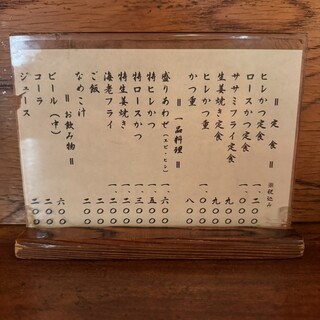 ＝定食＝　※税込み
ヒレかつ定食　一、二〇〇
ロースかつ定食　一、〇〇〇
ササミフライ定食　九〇〇
生姜焼き定食　九〇〇
ヒレかつ重　一、〇〇〇
かつ重　八〇〇
＝一品料理＝
盛りあわせ（エビ・ヒレ）　一、六〇〇
特ヒレかつ　一、五〇〇
特ロースかつ　一、三〇〇
特生姜焼き　一、二〇〇
海老フライ　一、二〇〇
ご飯　二〇〇
なめこ汁　二〇〇
＝お飲み物＝
ビール（中）　六〇〇
コーラ　二〇〇
ジュース　二〇〇